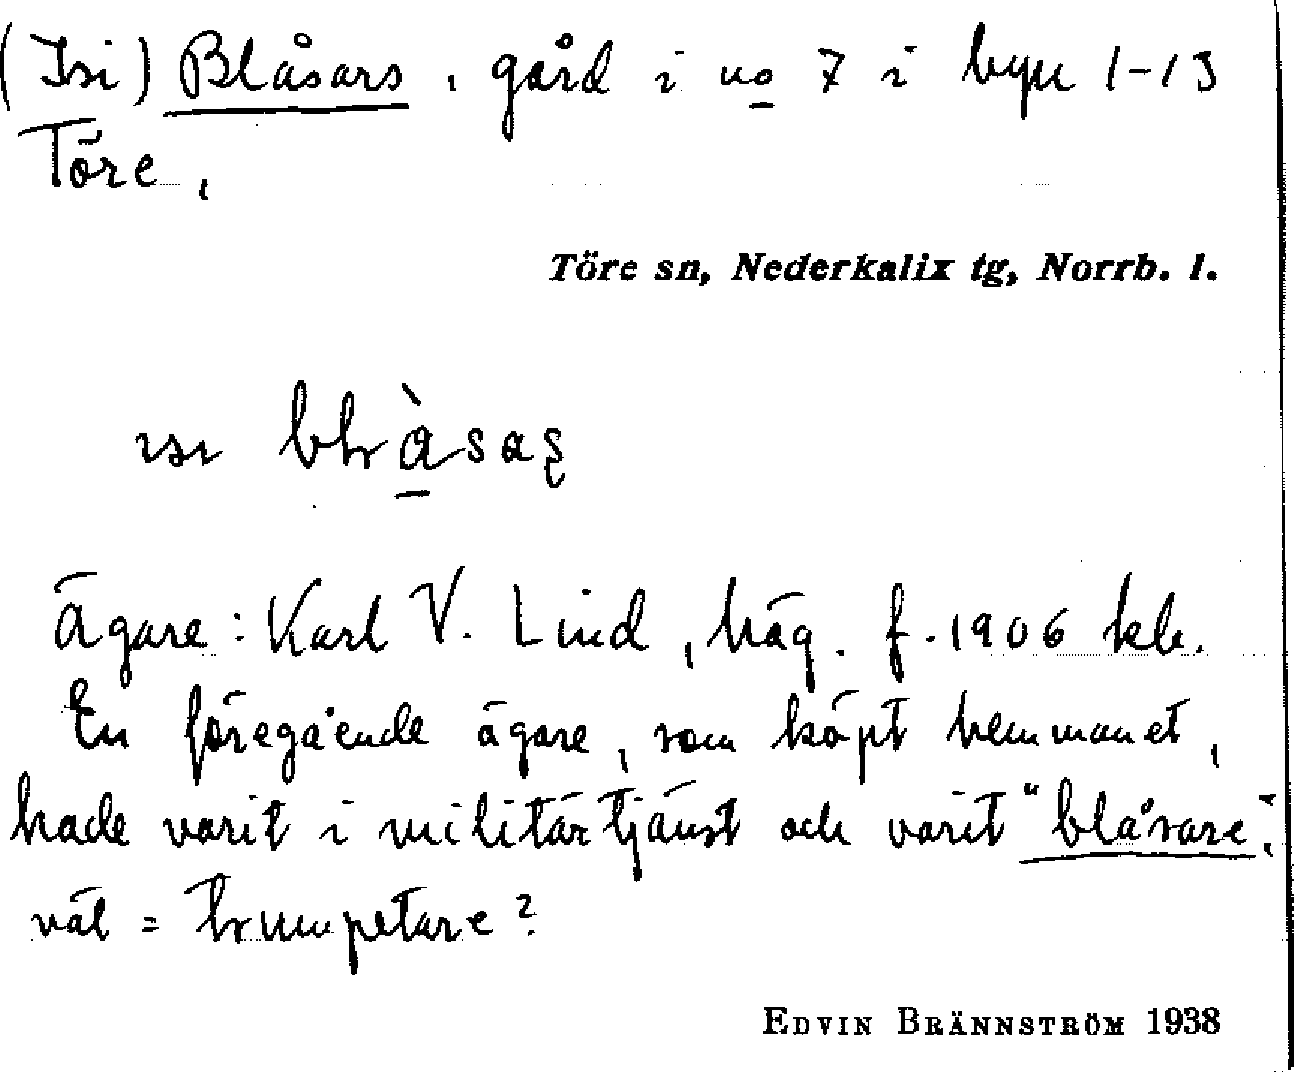 (Isi) Blåsars, gård i no 7 i byn 1-13
Töre,
Töre sn, Nederkalix tg, Norrb. l.
ısı
Ägare: Karl V. Lind, häg. f. 1906 hb.
En föregående ägare, som köpt hemmanet,
hade varit i militärtjänst och varit "blåsare",
väl = trumpetare?
EDVIN BRÄNNSTRÖM 1938